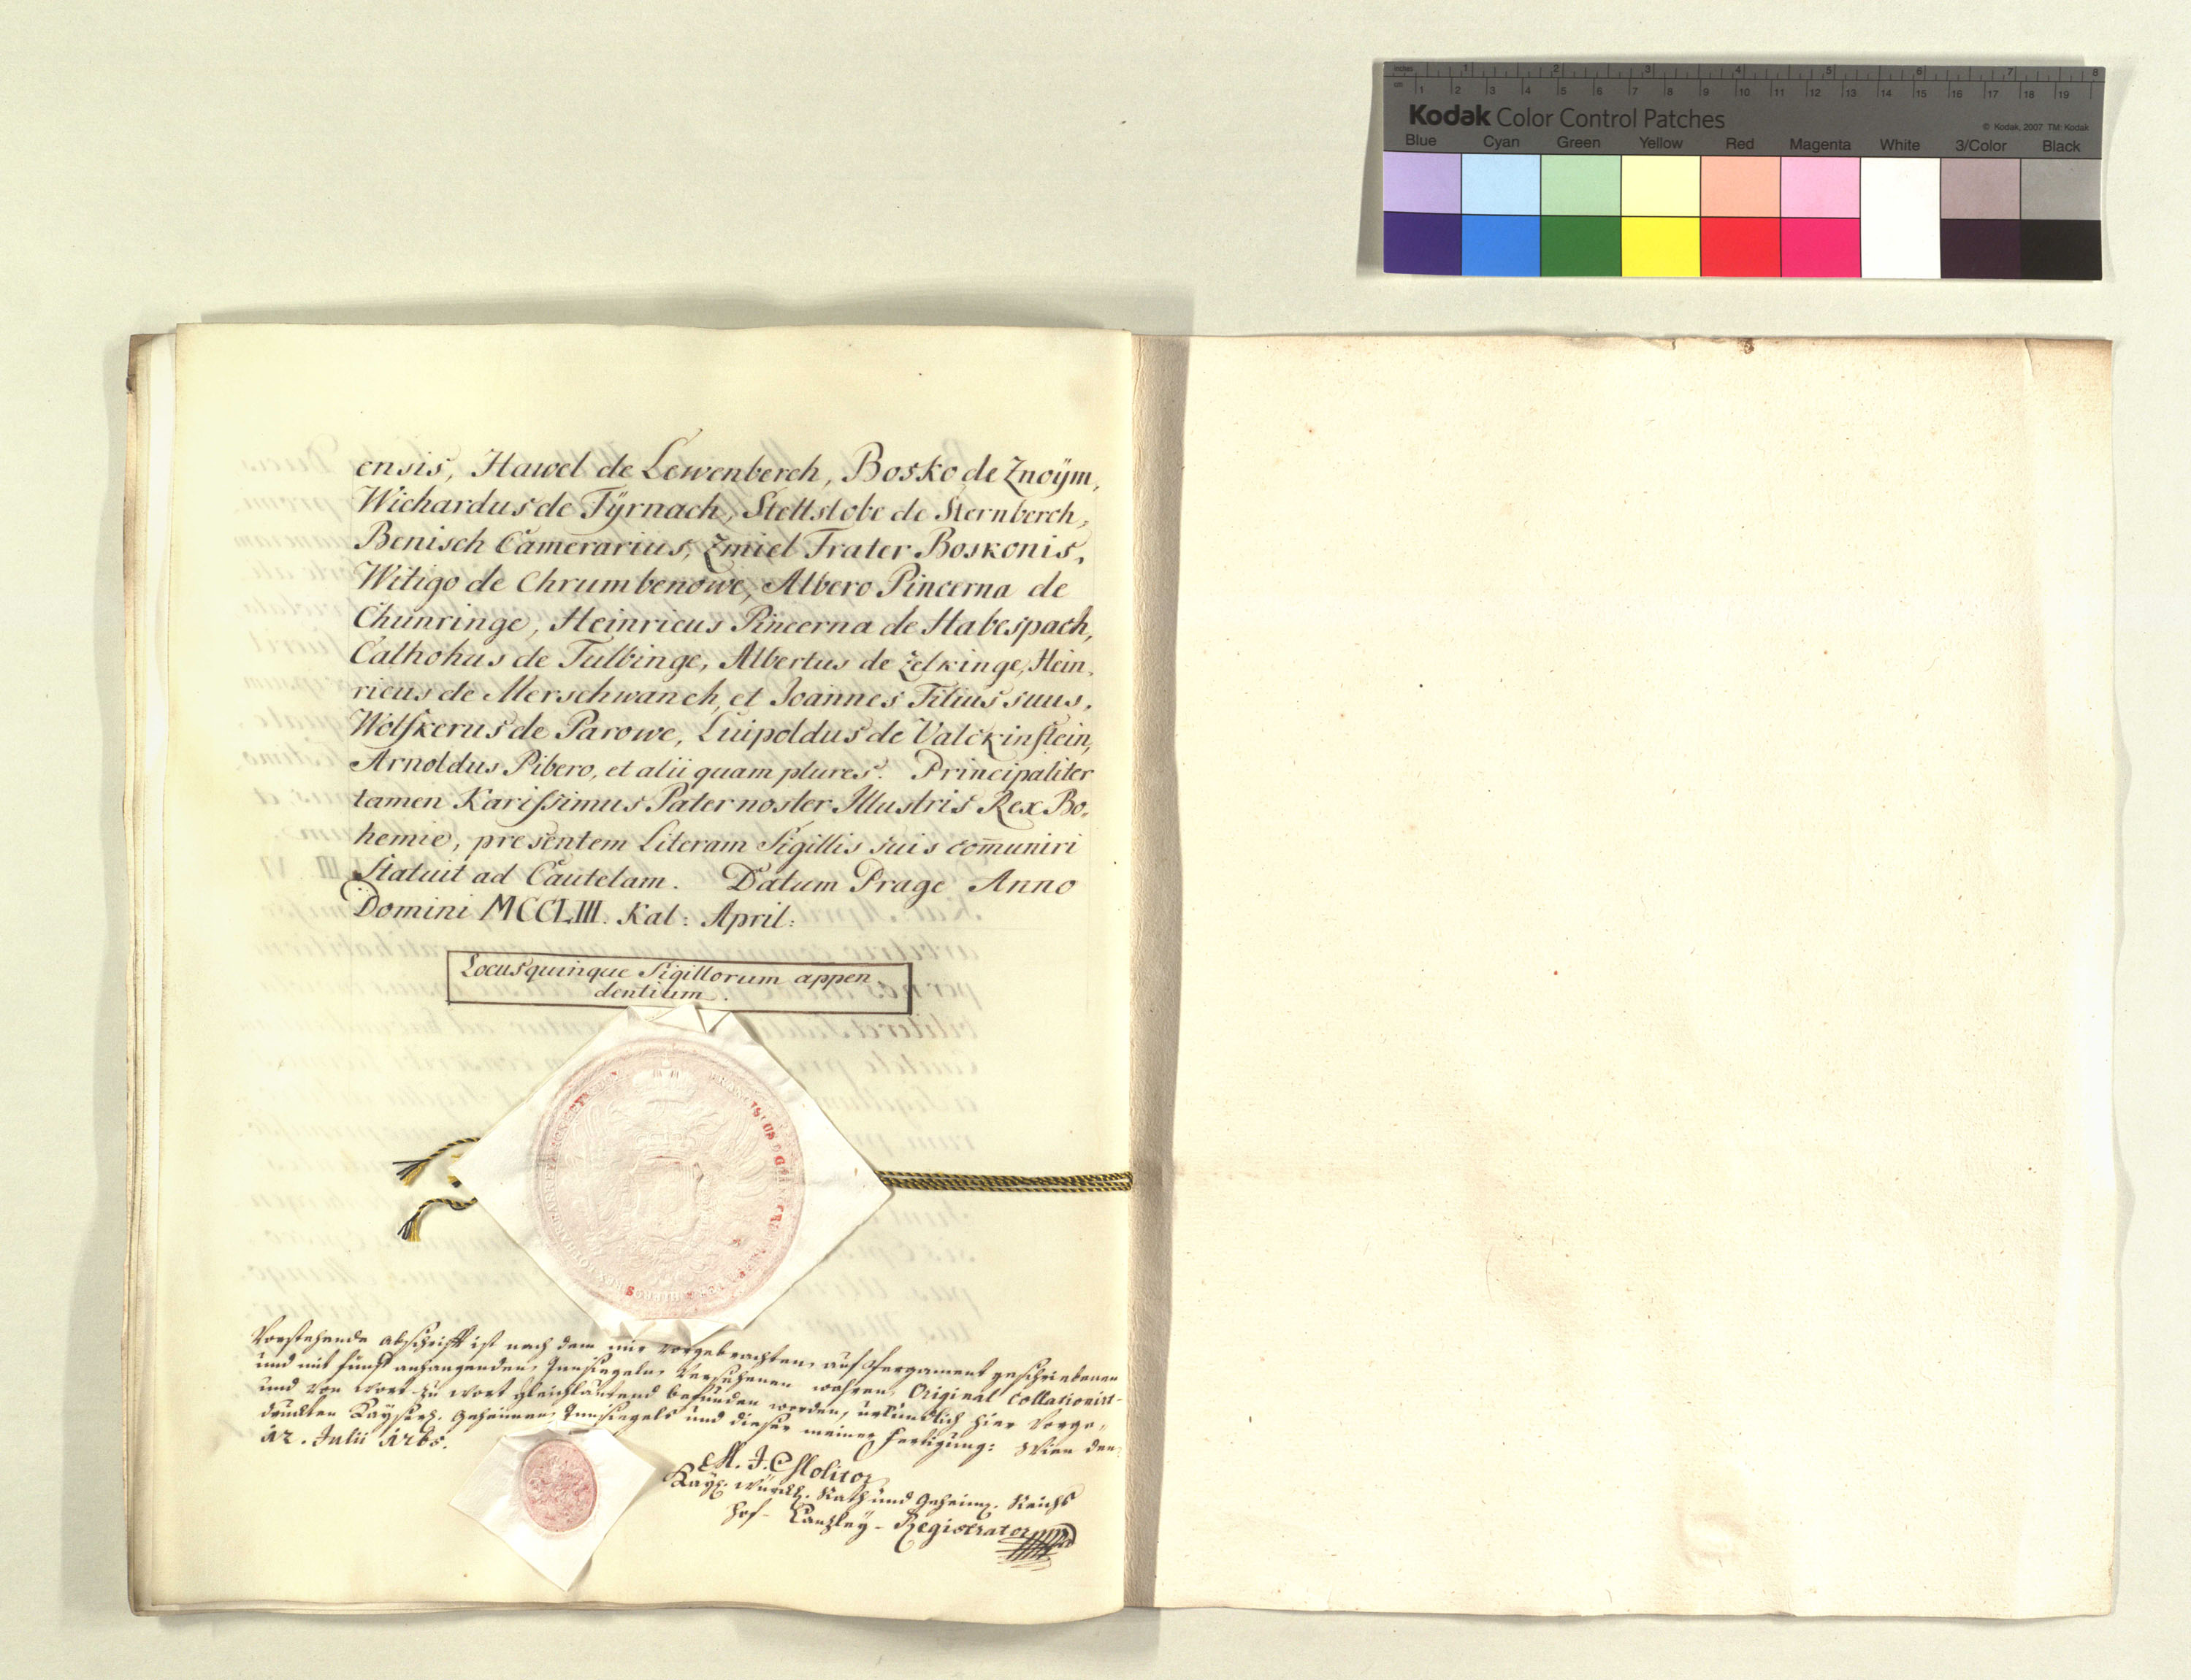 inches 1 2 3 4 5 6 7 8
cm 1 2 3 4 5 6 7 8 9 10 11 12 13 14 15 16 17 18 19
Kodak Color Control Patches
© Kodak, 2007 TM: Kodak
Blue Cyan Green Yellow Red Magenta White 3/Color Black
ensis, Hawel de Lewenberch, Bosko de Znoÿm,
Wichardus de Tÿrnach, Stettslobe de Sternberch,
Benisch Camerarius, Zmiel Frater Boskonis,
Witigo de Chrumbenowe, Albero Pincerna de
Chunringe, Heinricus Pincerna de Habespach,
Calhohus de Tulbinge, Albertus de Zelkinge, Hein-
ricus de Merschwanch, et Joannes Filius suus,
Wolfkerus de Parowe, Luipoldus de Valckinstein,
Arnoldus Pibero, et alii quam plures. Principaliter
tamen Karissimus Pater noster Illustris Rex Bo-
hemie, presentem Literam Sigillis suis com̄uniri
Statuit ad Cautelam. Datum Prage Anno
Domini MCCLIII. Kal: April:
Locus quinque Sigillorum appen
dentium.
Vorstehende Abschrifft ist nach dem mir vorgebrachten, auf Pergament geschriebenen
und mit fünff anhangenden Innsiegeln versehenen wahren Original collationirt-
und von wort zu wort gleichlautend befunden worden, urkundlich hier vorge-
druckten Kaÿserl. geheimen Innsiegels und dieser meiner fertigung: Wien den
12. Julii 1765.
M. J. Molitor
Kaÿl. würckl. Rath und Geheimr. Reichs
Hof-Canzleÿ-Registrator